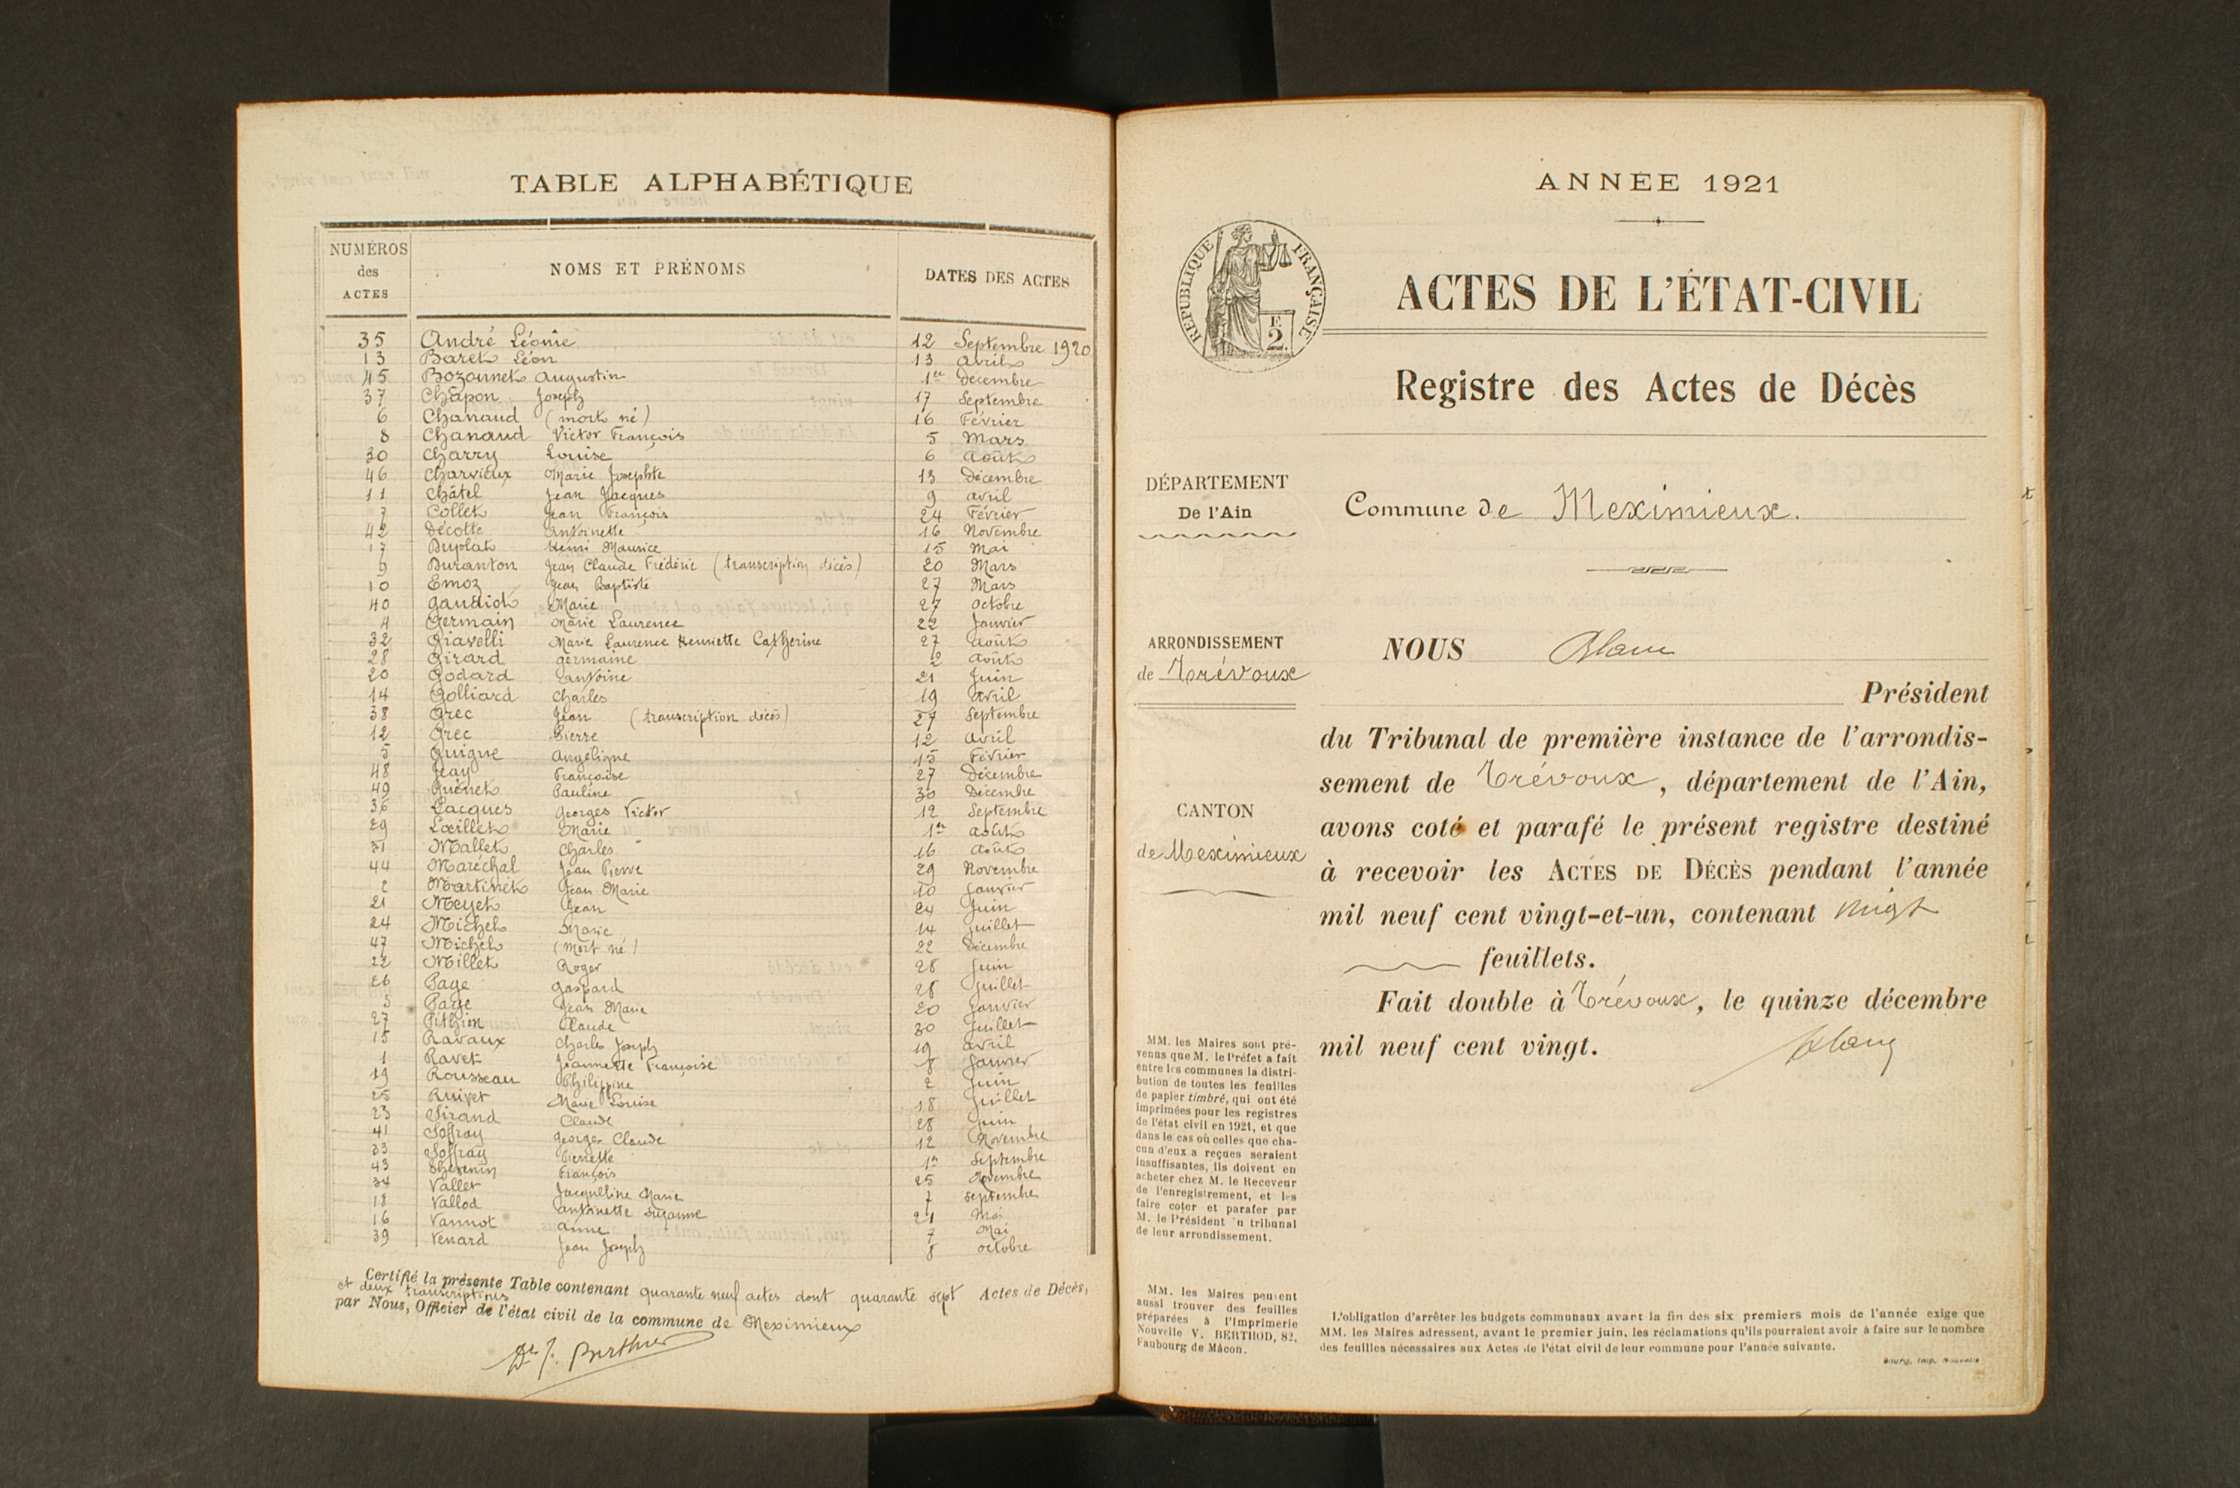 TABLE ALPHABÉTIQUE
NUMÉROS des ACTES NOMS ET PRÉNOMS DATES DES ACTES
35 André Léonie 12 Septembre 1920
13 Baret Léon 13 avril
45 Bozonnet Augustin 1er Décembre
37 Chapon Joseph 17 Septembre
6 Chanaud (mort né) 16 Février
8 Chanaud Victor François 5 Mars
30 Charry Louise 6 Août
46 Charvieux Marie Josephte 13 Décembre
11 Châtel Jean Jacques 9 avril
7 Collet Jean François 24 Février
42 Décotte Antoinette 16 Novembre
17 Duplat Henri Maurice 15 Mai
9 Duranton Jean Claude Frédéric (transcription décès) 20 Mars
10 Emoz Jean Baptiste 27 Mars
40 Gaudiot Marie 27 octobre
4 Germain Marie Laurence 22 Janvier
32 Giavelli Marie Laurence Henriette Catherine 27 Août
28 Girard Germaine 2 Août
20 Godard Antoine 21 Juin
14 Golliard Charles 19 Avril
38 Grec Jean (transcription décès) 27 Septembre
12 Grec Pierre 12 Avril
5 Guigue Angélique 15 Février
48 Jeay Françoise 27 Décembre
49 Pauline 30 Décembre
36 Lacques Georges Victor 12 Septembre
29 Lœillet Marie 1er Août
31 Mallet Charles 16 Août
44 Maréchal Jean Pierre 29 Novembre
2 Martinet Jean Marie 10 Janvier
21 Meyet Jean 24 Juin
24 Michel Marie 14 Juillet
47 Michel (Mort né) 22 Décembre
22 Millet Roger 28 Juin
26 Page Gaspard 28 Juillet
3 Page Jean Marie 20 Janvier
27 Pithion Claude 30 Juillet
15 Ravaux Charles Joseph 19 avril
1 Ravet Jeannette Françoise 8 Janvier
19 Rousseau Philippine 2 Juin
25 Ruivet Marie Louise 18 Juillet
23 Sirand Claude 28 Juin
41 Soffray Georges Claude 12 Novembre
33 Soffray Pierrette 1er Septembre
43 Thévenin François 25 Novembre
34 Vallet Jacqueline Marie 7 Septembre
18 Vallod Antoinette Suzanne 21 Mai
16 Vannot Anne 7 Mai
39 Venard Jean Joseph 8 octobre
Certifié la présente Table contenant quarante neuf actes dont quarante sept Actes de Décès,
et deux transcriptions
par Nous, Officier de l'état civil de la commune de Meximieux
Dr J. Berthier
ANNEE 1921
REPUBLIQUE FRANÇAISE
F
2
ACTES DE L'ÉTAT-CIVIL
Registre des Actes de Décès
DÉPARTEMENT
De l'Ain
Commune de Meximieux.
ARRONDISSEMENT
de Trévoux
CANTON
de Meximieux
NOUS Blanc
Président
du Tribunal de première instance de l'arrondis-
sement de Trévoux, département de l'Ain,
avons coté et parafé le présent registre destiné
à recevoir les ACTES DE DÉCÈS pendant l'année
mil neuf cent vingt-et-un, contenant vingt
feuillets.
Fait double à Trévoux, le quinze décembre
mil neuf cent vingt.
Blanc
MM. les Maires sont pré-
venus que M. le Préfet a fait
entre les communes la distri-
bution de toutes les feuilles
de papier timbré, qui ont été
imprimées pour les registres
de l'état civil en 1921, et que
dans le cas où celles que cha-
cun d'eux a reçues seraient
insuffisantes, ils doivent en
acheter chez M. le Receveur
de l'enregistrement, et les
faire coter et parafer par
M. le Président du tribunal
de leur arrondissement.
MM. les Maires peuvent
aussi trouver des feuilles
préparées à l'Imprimerie
Nouvelle V. BERTHOD, 82,
Faubourg de Mâcon.
L'obligation d'arrêter les budgets communaux avant la fin des six premiers mois de l'année exige que
MM. les Maires adressent, avant le premier juin, les réclamations qu'ils pourraient avoir à faire sur le nombre
des feuilles nécessaires aux Actes de l'état civil de leur commune pour l'année suivante.
Bourg, Imp. Nouvelle